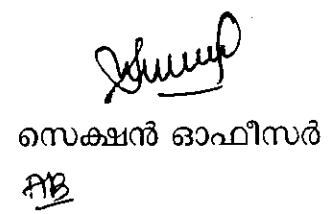 സെക്ഷൻ ഓഫീസർ
AB